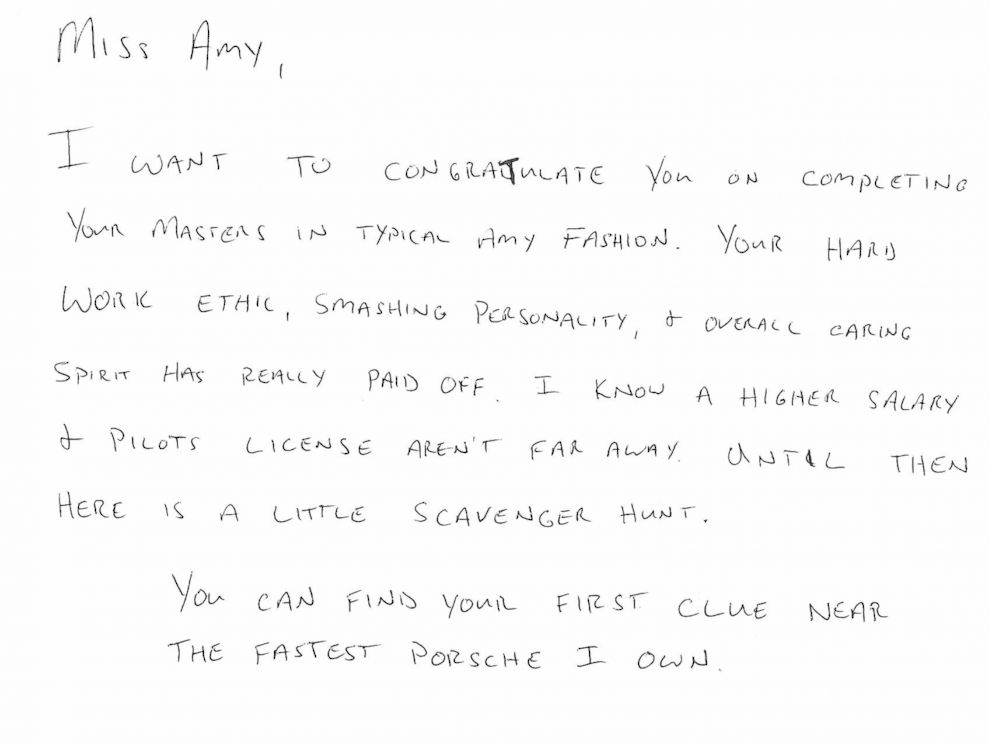 Miss Amy,
I WANT TO CONGRATULATE YOU ON COMPLETING
YOUR MASTERS IN TYPICAL AMY FASHION. YOUR HARD
WORK ETHIC, SMASHING PERSONALITY, & OVERALL CARING
SPIRIT HAS REALLY PAID OFF. I KNOW A HIGHER SALARY
& PILOTS LICENSE AREN'T FAR AWAY. UNTIL THEN
HERE IS A LITTLE SCAVENGER HUNT.
YOU CAN FIND YOUR FIRST CLUE NEAR
THE FASTEST PORSCHE I OWN.